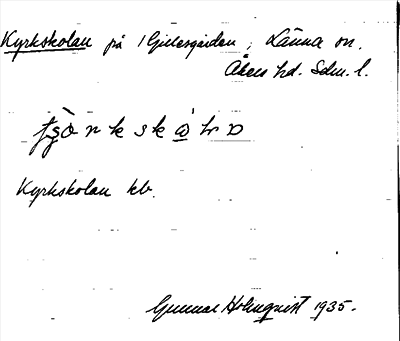 Kyrkskolan på 1 Gillesgården, Länna sn.
Åkers hd. Sdm. l.
Kyrkskolan kb.
Gunnar Holmquist 1935.